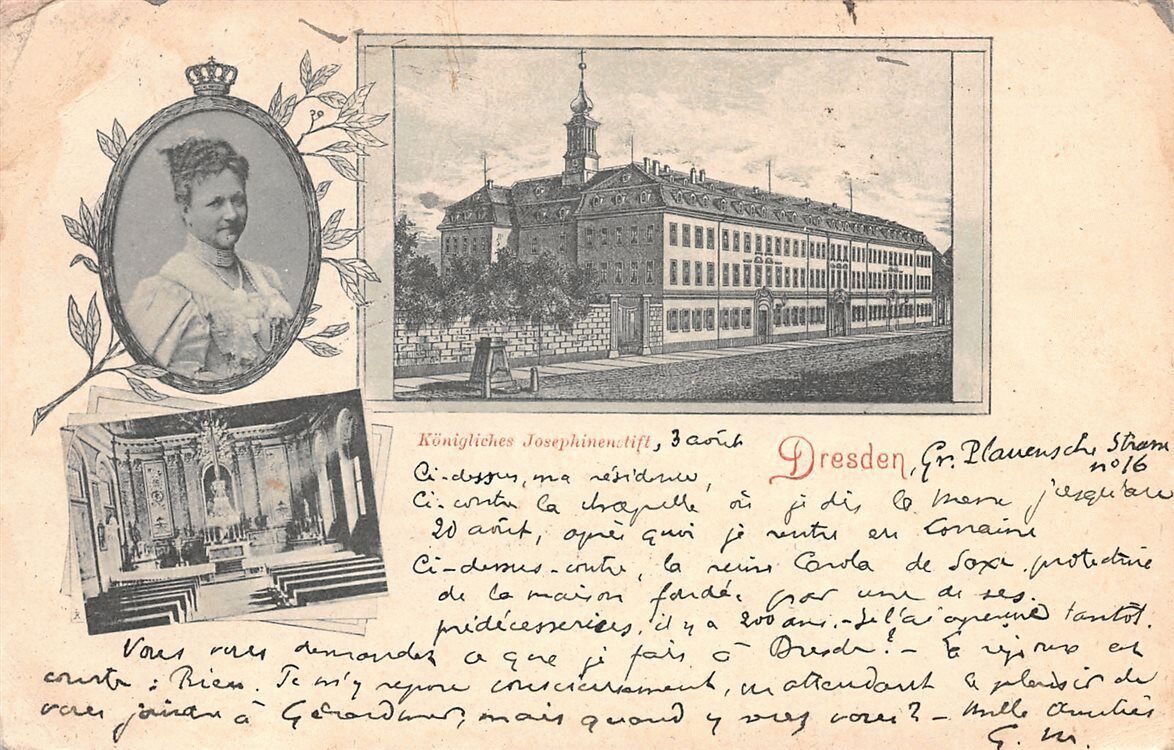 Königliches Josephinenstift, 3 août
Dresden, Gr. Plauensche Strasse
n° 16
Ci-dessus, ma résidence,
Ci-contre la chapelle où je dis la messe jusqu'au
20 août, après quoi je rentre en Lorraine
Ci-dessus-contre, la reine Carola de Saxe, protectrice
de la maison fondée par une de ses
prédécesserices, il y a 200 ans. - Je l'ai aperçue tantôt.
Vous vous demandez ce que je fais à Dresde? - La réponse est
courte: Rien. Je m'y repose consciencieusement, en attendant le plaisir de
vous joindre à Gérardmer, mais quand y serez vous? - Mille amitiés
G. M.